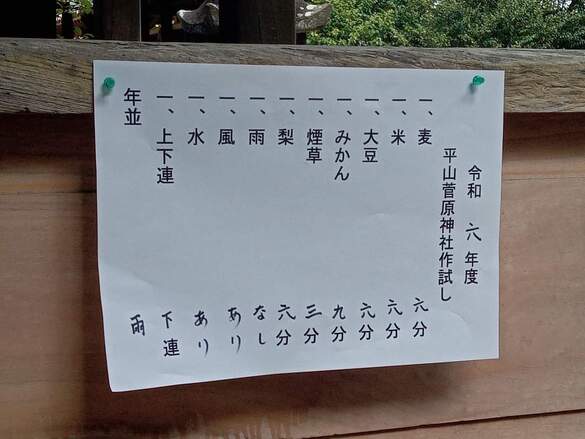 令和 六 年度
平山菅原神社作試し
一、麦 六分
一、米 六分
一、大豆 六分
一、みかん 九分
一、煙草 三分
一、梨 六分
一、雨 なし
一、風 あり
一、水 あり
一、上下連 下連
年並 雨